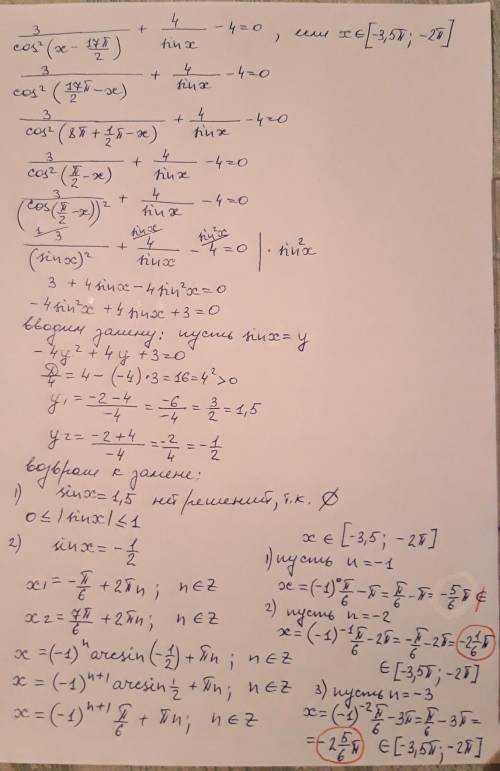 3/cos²(x − 17π/2) + 4/sinx − 4 = 0, или x∈[−3,5π; −2π]
3/cos²(17π/2 − x) + 4/sinx − 4 = 0
3/cos²(8π + 1/2π − x) + 4/sinx − 4 = 0
3/cos²(π/2 − x) + 4/sinx − 4 = 0
3/(cos(π/2 − x))² + 4/sinx − 4 = 0
1/ 3/(sinx)² + sinx/ 4/sinx − sin²x/ 4 = 0 | · sin²x
3 + 4sinx − 4sin²x = 0
−4sin²x + 4sinx + 3 = 0
вводим замену: пусть sinx = y
−4y² + 4y + 3 = 0
D/4 = 4 − (−4)·3 = 16 = 4² > 0
y₁ = (−2−4)/−4 = −6/−4 = 3/2 = 1,5
y₂ = (−2+4)/−4 = −2/4 = −1/2
возврат к замене:
1) sinx = 1,5 нет решений, т.к. ∅
0 ≤ |sinx| ≤ 1
2) sinx = −1/2
x₁ = −π/6 + 2πn; n∈Z
x₂ = 7π/6 + 2πn; n∈Z
x = (−1)ⁿ arcsin(−1/2) + πn; n∈Z
x = (−1)ⁿ⁺¹ arcsin 1/2 + πn; n∈Z
x = (−1)ⁿ⁺¹ π/6 + πn; n∈Z
x ∈ [−3,5; −2π]
1) пусть n = −1
x = (−1)⁰ π/6 − π = π/6 − π = −5/6π ∉
2) пусть n = −2
x = (−1)⁻¹ π/6 − 2π = −π/6 − 2π = −2 1/6π
∈ [−3,5π; −2π]
3) пусть n = −3
x = (−1)⁻² π/6 − 3π = π/6 − 3π =
= −2 5/6π ∈ [−3,5π; −2π]